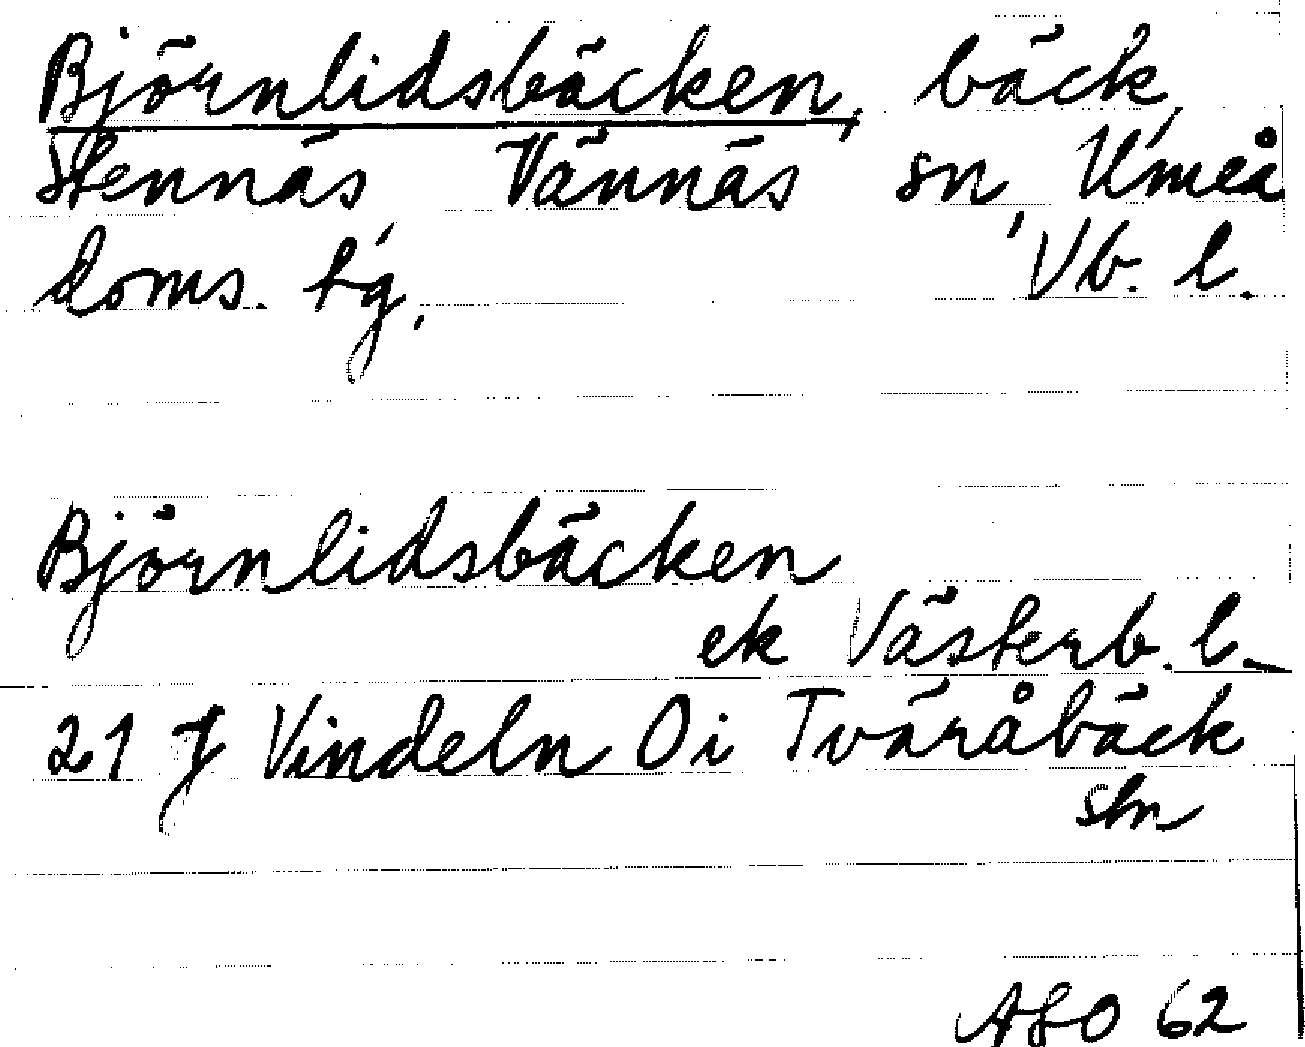 Björnlidsbäcken, bäck,
Stennäs, Vännäs sn, Umeå
doms. tg, Vb. l.
Björnlidsbäcken
ek Västerb. l.
21 J Vindeln Oi Tväråbäck
stn
ASO 62